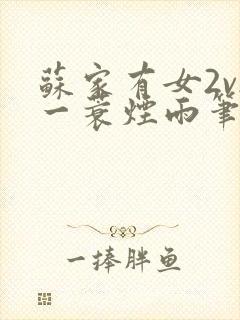 蘇家有女2v
一蓑煙雨筆
一捧胖鱼